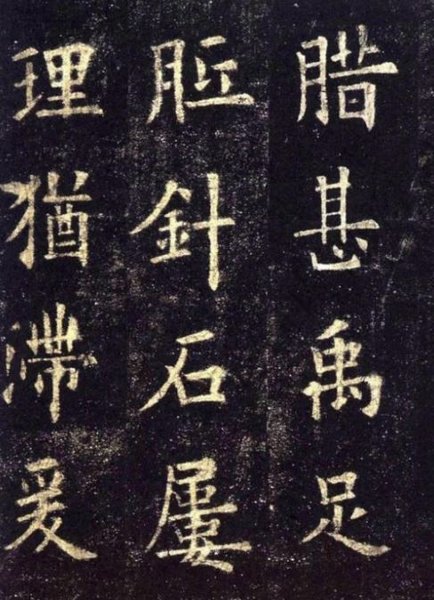 腊甚禹足
胝針石屢
理猶滯爰